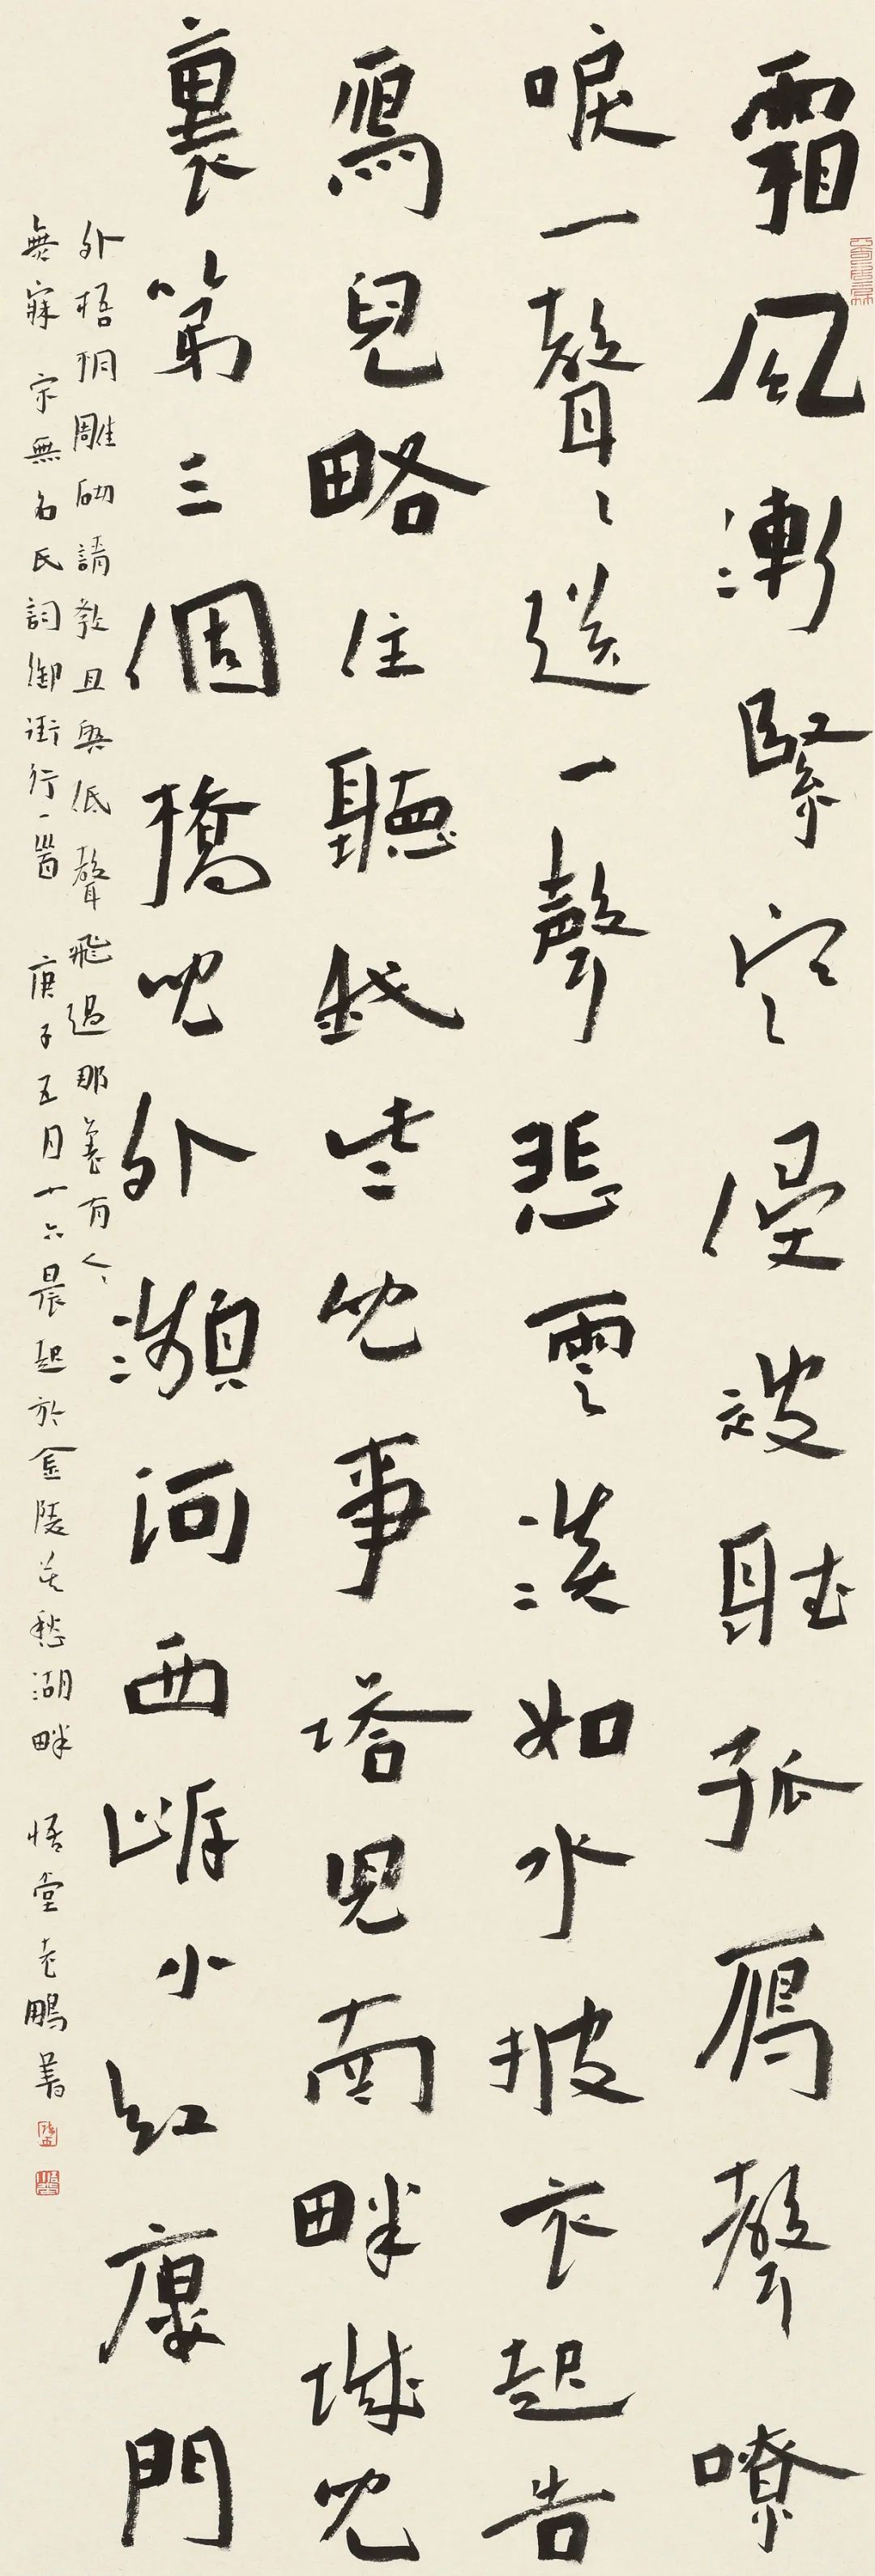 霜風漸緊寒侵被聽孤雁聲嘹
唳一聲聲送一聲悲雲淡如水披衣起告
鴈兒略住聽我些兒事塔兒南畔城兒
裏第三個橋兒外瀕河西岸小紅樓門
外梧桐雕砌請教且與低聲飛過那裏有人人
無寐 宋無名氏詞御街行一首 庚子五月十六晨起於金陵莫愁湖畔 悟堂老鵬書